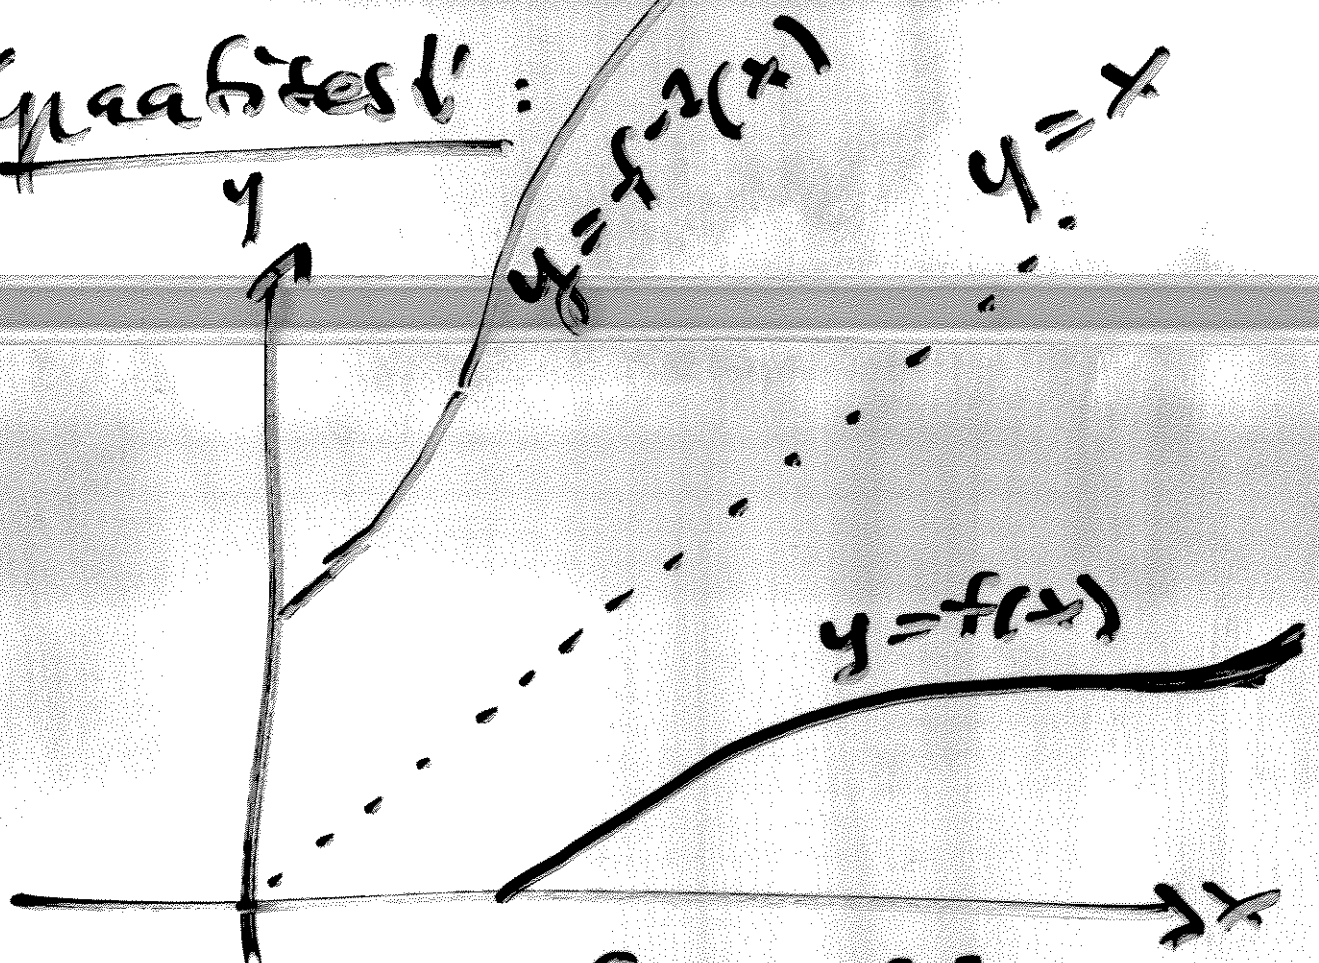 Graafisesti:
y
y = f⁻¹(x)
y = x
y = f(x)
x